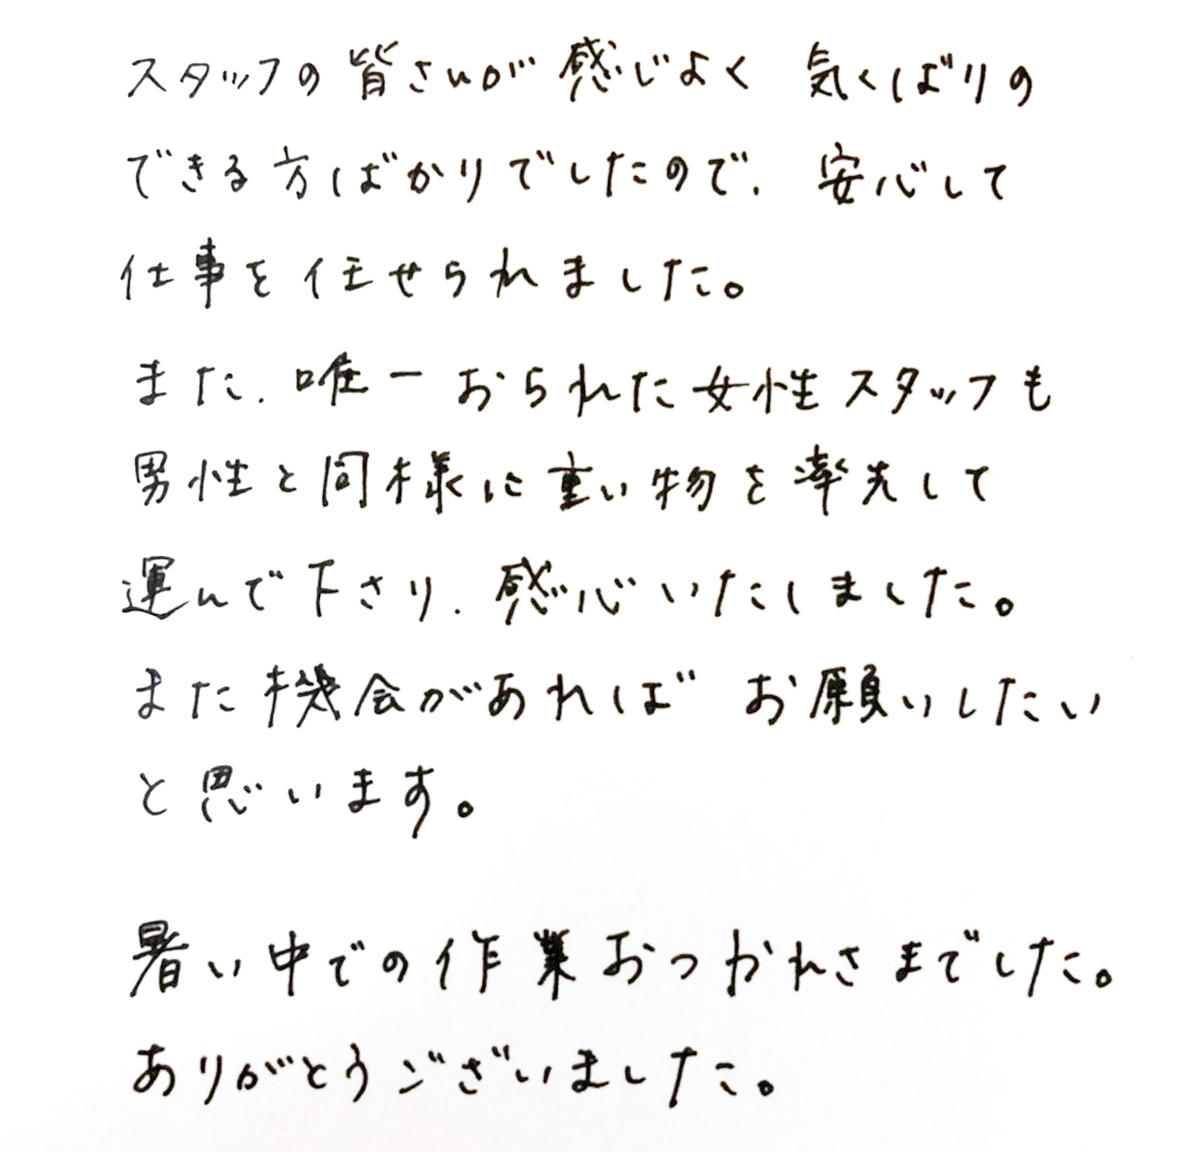 スタッフの皆さんが感じよく 気くばりの
できる方ばかりでしたので、安心して
仕事を任せられました。
また、唯一おられた女性スタッフも
男性と同様に重い物を率先して
運んで下さり、感心いたしました。
また機会があれば お願いしたい
と思います。
暑い中での作業おつかれさまでした。
ありがとうございました。